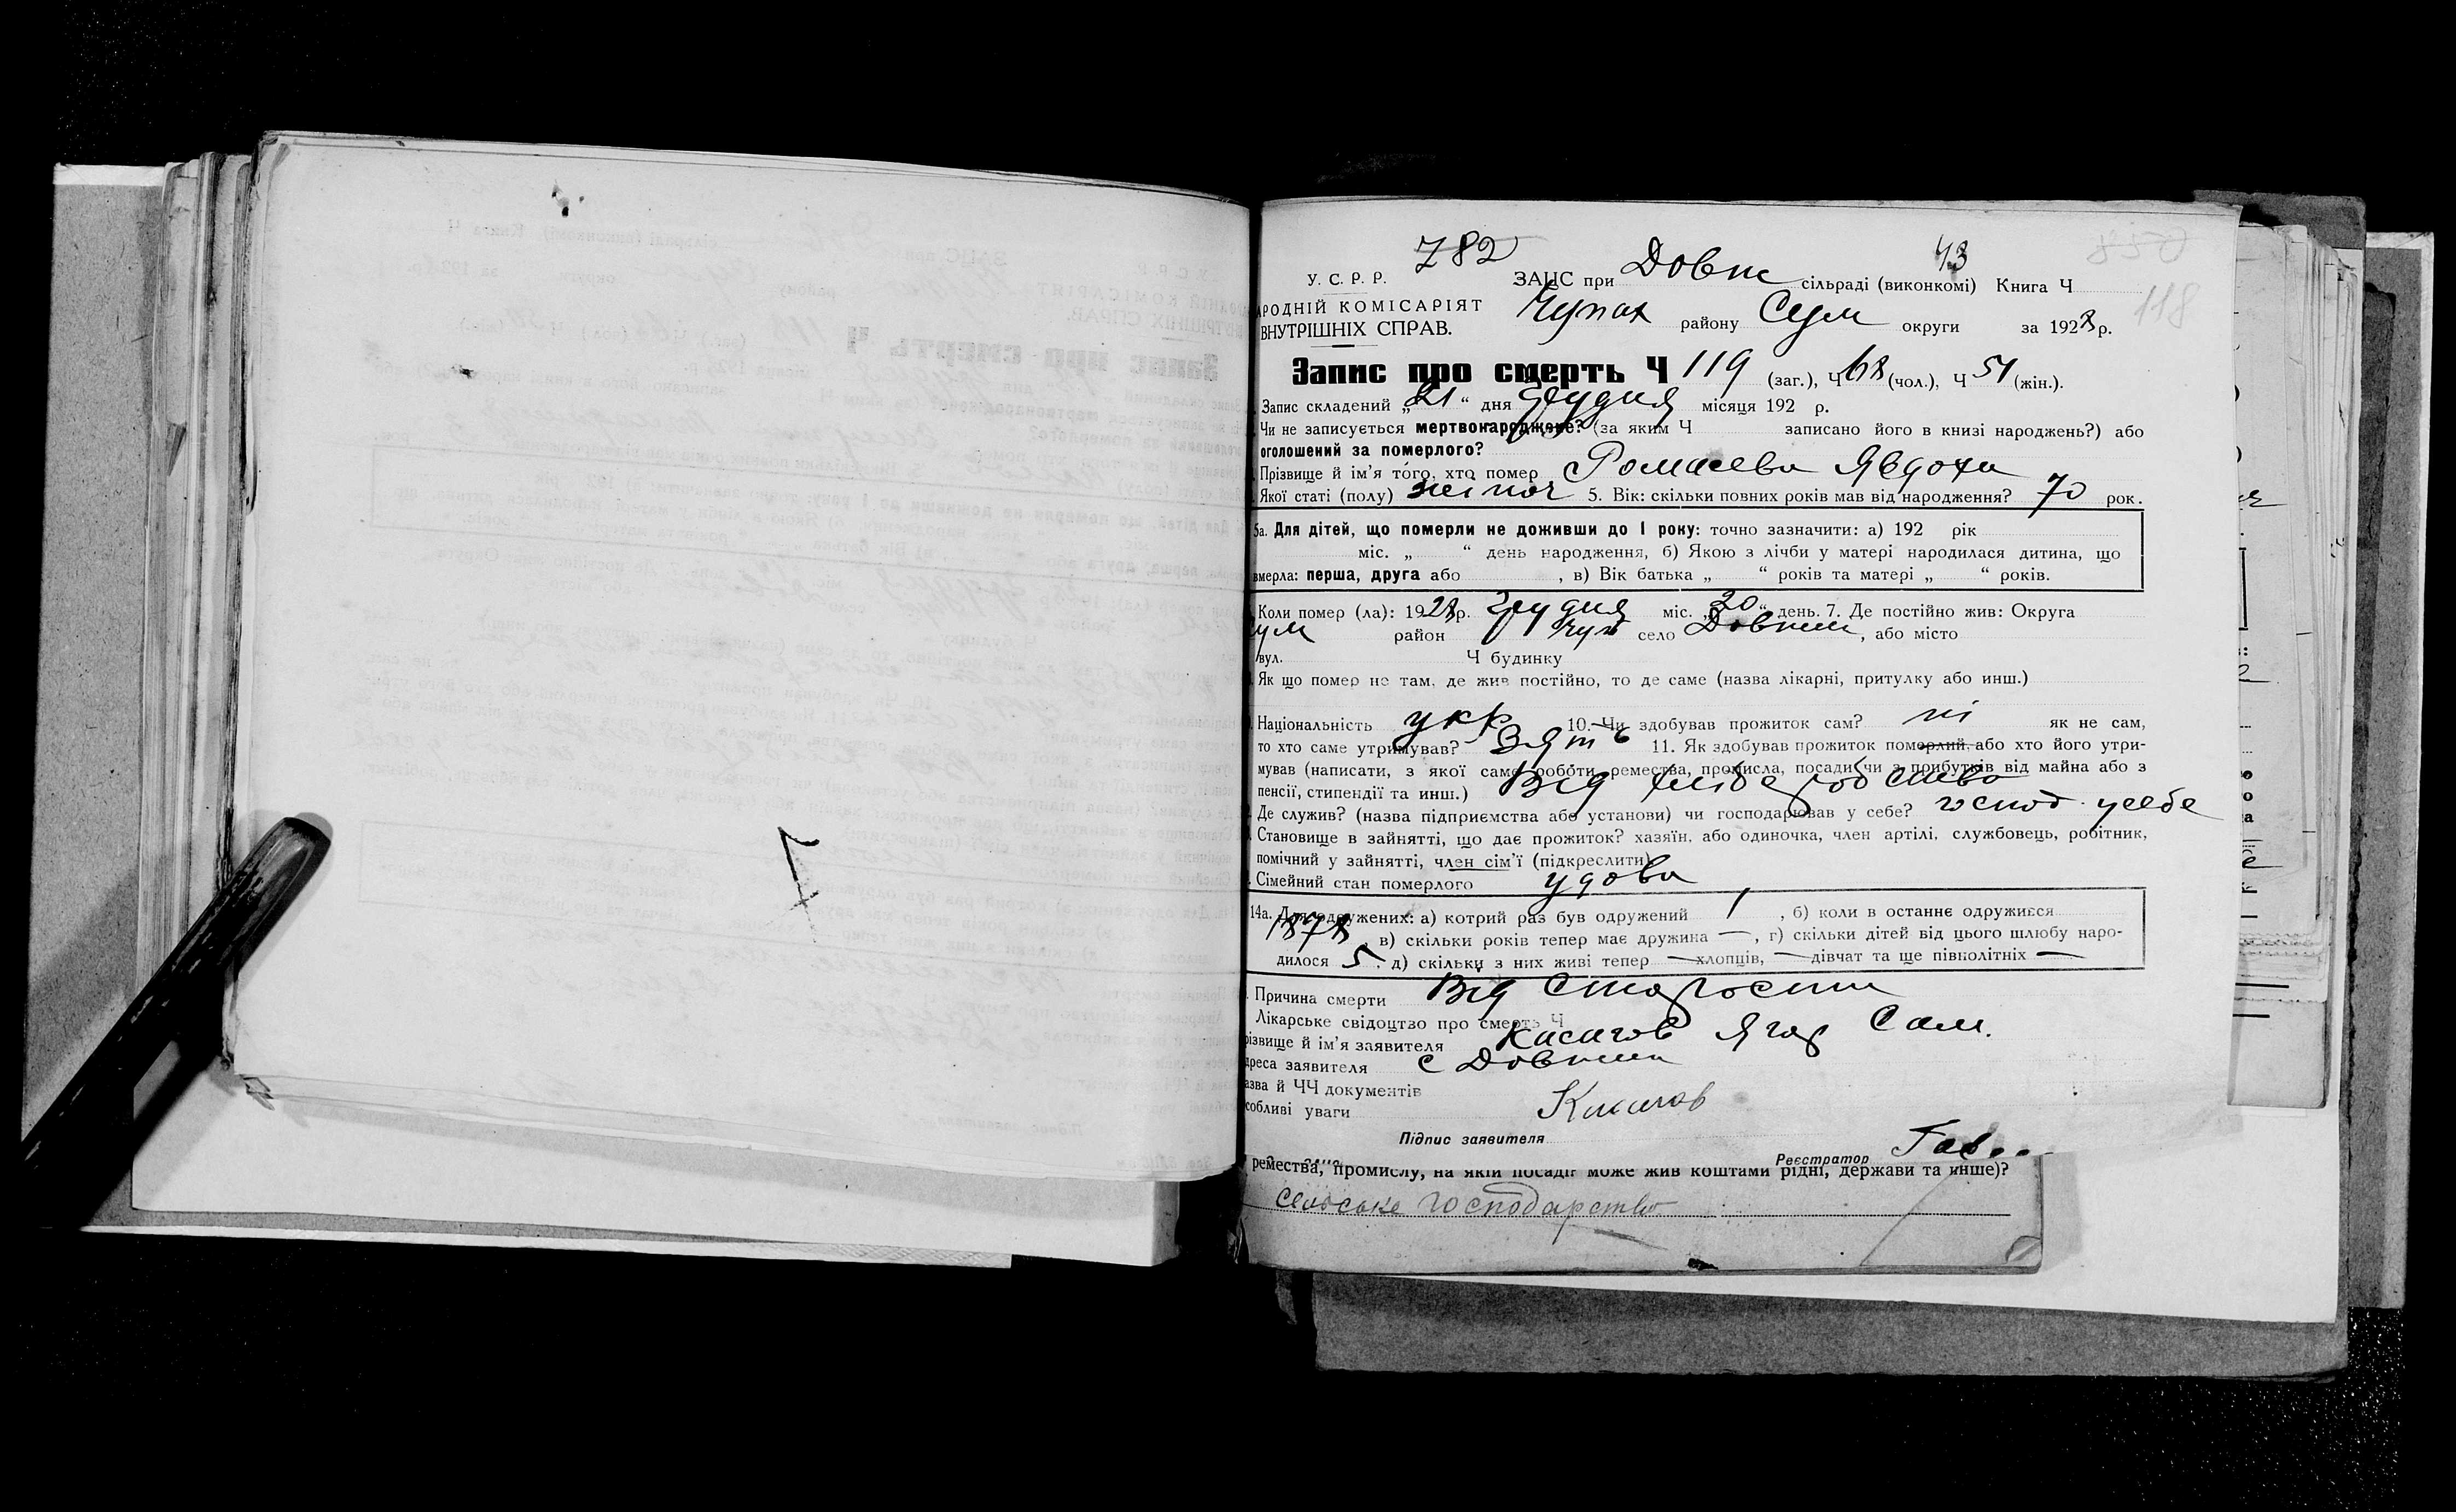 782
43
У. С. Р. Р. ЗАЦС при Довж сільраді (виконкомі) Книга Ч
118
АРОДНІЙ КОМІСАРІЯТ Чупах району Сум округи за 1928 р.
ВНУТРІШНІХ СПРАВ.
Запис про смерть Ч 119 (заг.), Ч 68 (чол.), Ч 51 (жін.).
Запис складений „21“ дня Грудня місяця 192 р.
Чи не записується мертвонароджене? (за яким Ч записано його в книзі народжень?) або
оголошений за померлого?
Прізвище й ім'я того, хто помер Ромаєева Явдоха
Якої статі (полу) жіноч 5. Вік: скільки повних років мав від народження? 70 рок.
5а. Для дітей, що померли не доживши до 1 року: точно зазначити: а) 192 рік
міс. „ “ день народження, б) Якою з лічби у матері народилася дитина, що
вмерла: перша, друга або , в) Вік батька „ “ років та матері „ “ років.
Коли помер (ла): 1928 р. Грудня міс. „20“ день. 7. Де постійно жив: Округа
ум район Чуп село Довжик, або місто
вул. Ч будинку
Як що помер не там, де жив постійно, то де саме (назва лікарні, притулку або инш.)
Національність укр 10. Чи здобував прожиток сам? ні як не сам,
то хто саме утримував? Зять 11. Як здобував прожиток померлий або хто його утри-
мував (написати, з якої саме роботи, ремества, промисла, посади чи з прибутків від майна або з
пенсії, стипендії та инш.) Від хліберобства
Де служив? (назва підприємства або установи) чи господарював у себе? господ. усебе
Становище в зайнятті, що дає прожиток? хазяїн, або одиночка, член артілі, службовець, робітник,
помічний у зайнятті, член сім'ї (підкреслити)
Сімейний стан померлого удова
14а. Для одружених: а) котрий раз був одружений 1, б) коли в останнє одружився
1878, в) скільки років тепер має дружина —, г) скільки дітей від цього шлюбу наро-
дилося 5, д) скільки з них живі тепер — хлопців, — дівчат та ще півколітніх —
Причина смерти Від Старости
Лікарське свідоцтво про смерть Ч
різвище й ім'я заявителя Касичов Ягор Сам.
дреса заявителя с Довжик
азва й ЧЧ документів
собливі уваги
Підпис заявителя
Реєстратор
ремества, промислу, на якій посаді може жив коштами рідні, держави та инше)?
сельське господарство